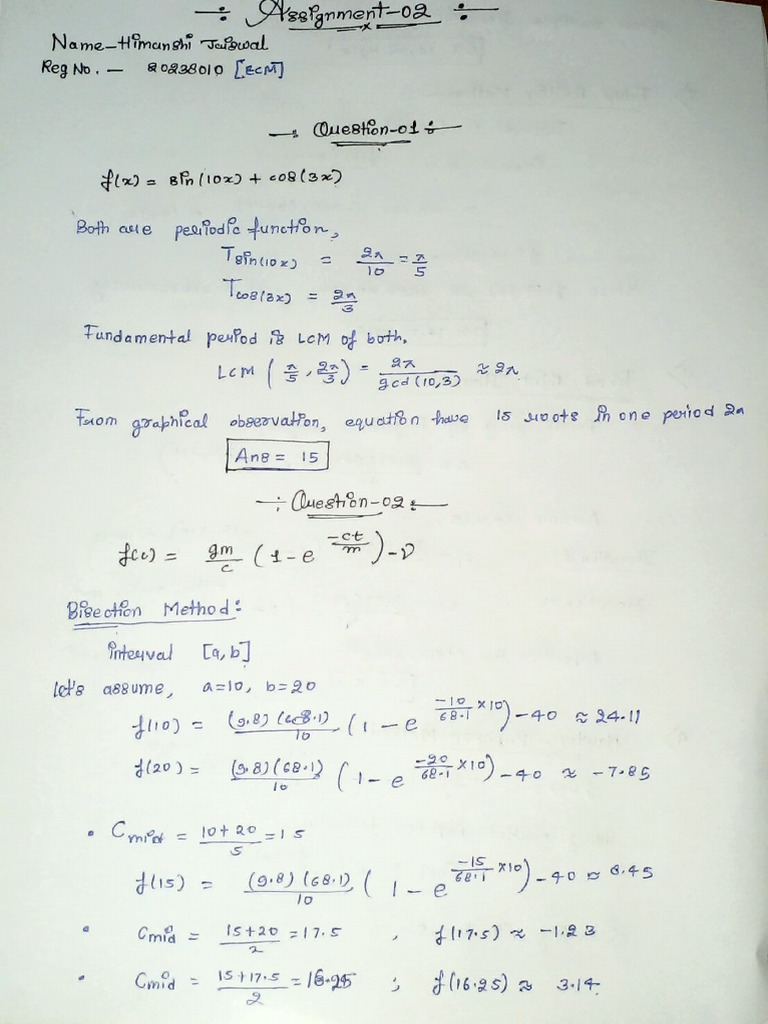 ÷ Assignment-02 ÷
Name-Himanshi Jaiswal
Reg No. — 20238010 [ECM]
Question-01
f(x) = sin(10x) + cos(3x)
Both are periodic function,
T sin(10x) = 2π/10 = π/5
T cos(3x) = 2π/3
Fundamental period is LCM of both.
LCM (π/5, 2π/3) = 2π/gcd(10,3) ≈ 2π
From graphical observation, equation have 15 roots in one period 2π
Ans = 15
Question-02
f(c) = gm/c (1 - e^(-ct/m)) - v
Bisection Method:
interval [a,b]
let's assume, a=10, b=20
f(10) = (9.8)(68.1)/10 (1 - e^(-10/68.1 ×10)) - 40 ≈ 24.11
f(20) = (9.8)(68.1)/10 (1 - e^(-20/68.1 ×10)) - 40 ≈ -7.85
• Cmid = 10+20/5 = 15
f(15) = (9.8)(68.1)/10 (1 - e^(-15/68.1 ×10)) - 40 ≈ 8.45
• Cmid = 15+20/2 = 17.5 , f(17.5) ≈ -1.23
• Cmid = 15+17.5/2 = 16.25 ; f(16.25) ≈ 3.14